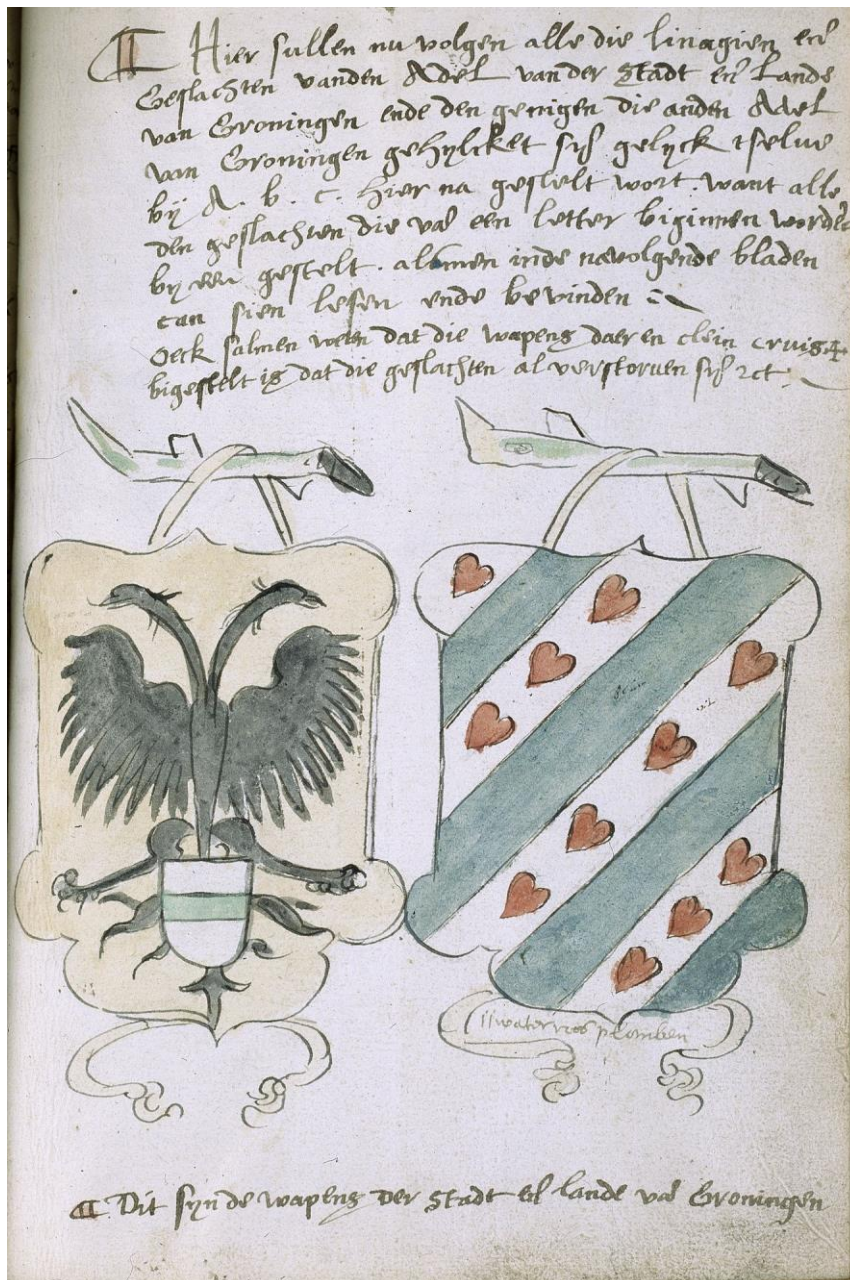 Hier sullen nu volgen alle die linagien en̄
Geslachten vanden Adel vander Stadt en̄ Lande
van Groningen ende den genigen die anden Adel
van Groningen gehylicket syn gelyck tselue
bij A. b. c. hier na gestelt wort. want alle
den geslachten die vā een letter biginnen worden
by een gestelt. alsmen inde navolgende bladen
can sien lesen ende bevinden
Oeck salmen weten dat die wapens daer en clein cruis ✢
bigestelt is dat die geslachten al verstorven syn
iiwater plomben
Dit syn de wapens der Stadt en̄ lande vā Groningen